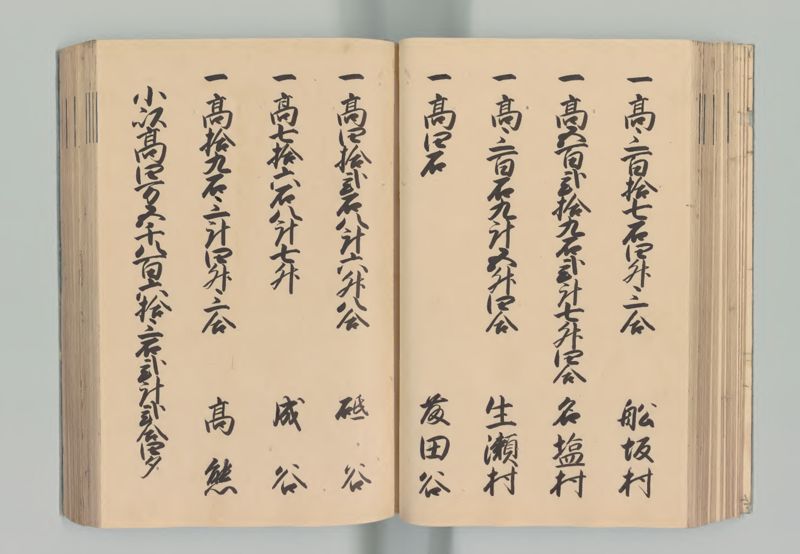 一高三百拾七石四升三合 舩坂村
一高五百弐拾九石弐斗七升四合 名塩村
一高三百石九斗五升四合 生瀬村
一高四石 田谷
一高四拾弐石八斗六升八合 砥谷
一高七拾六石八斗七升 成谷
一高拾九石三斗四升三合 高熊
小以高四万五千八百六拾三石弐斗弐合四夕